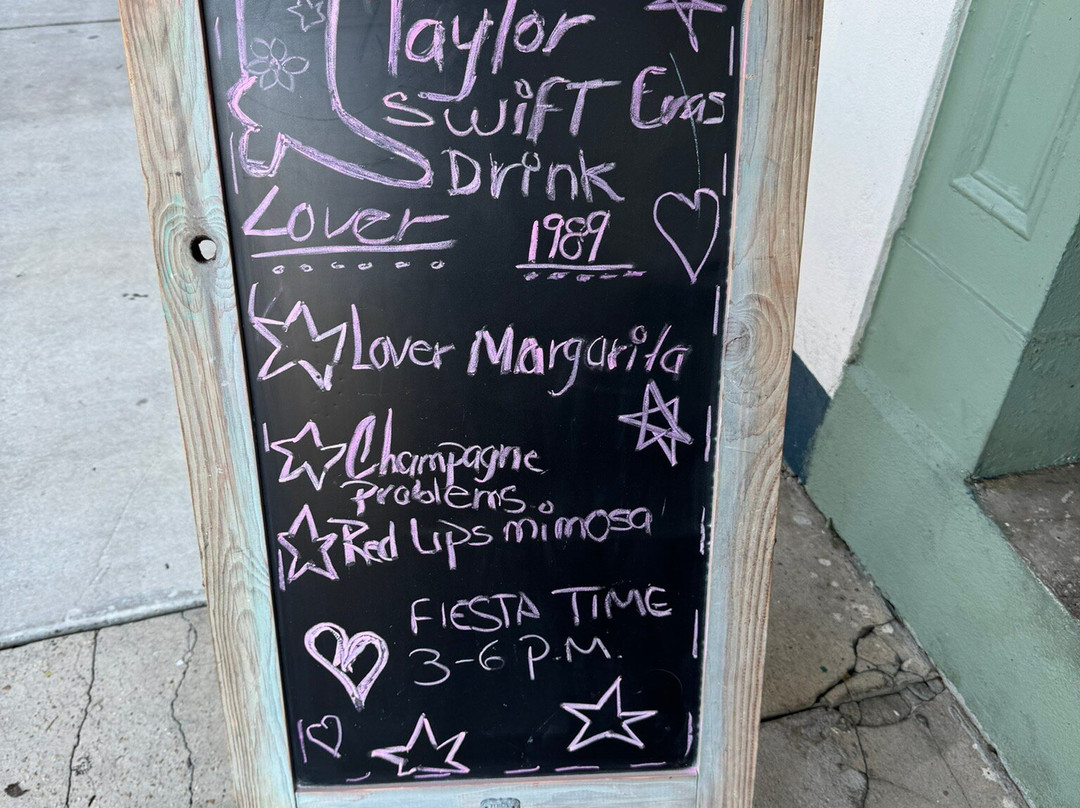 Taylor
Swift Eras
Drink
Lover 1989
Lover Margarita
Champagne
Problems.
Red Lips mimosa
FIESTA TIME
3-6 P.M.